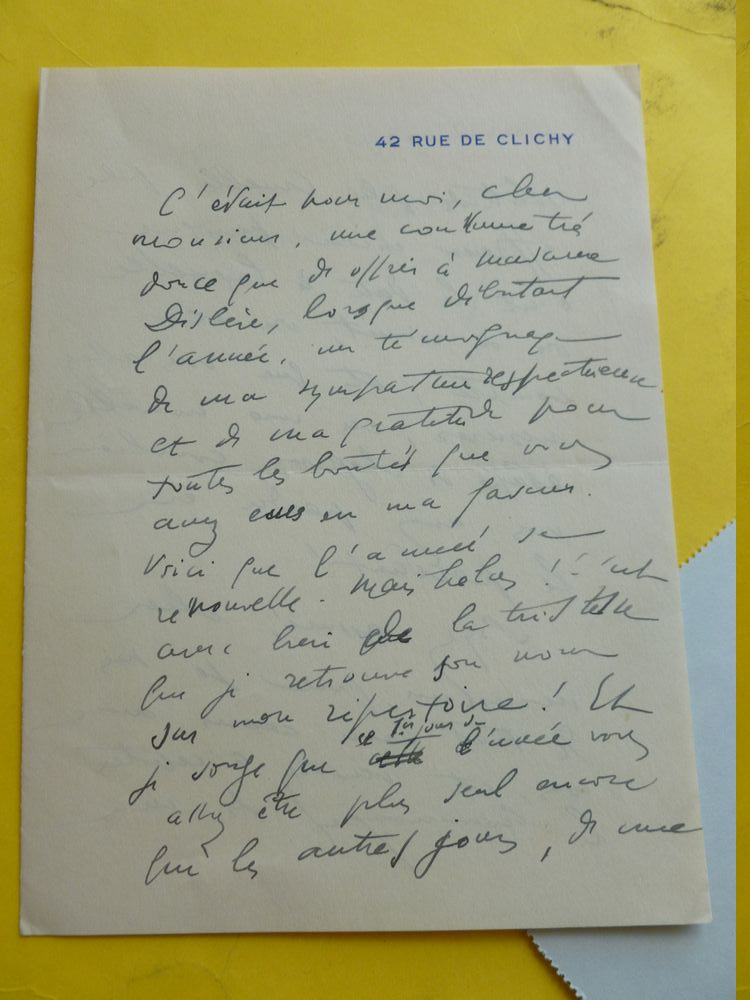 42 RUE DE CLICHY
C'était pour moi, cher
monsieur, une coutume très
douce que de offrir à madame
Dislère, lorsque débutait
l'année, un témoignage
de ma sympathie respectueuse
et de ma gratitude pour
toutes les bontés que vous
avez eues en ma faveur.
Voici que l'année se
renouvelle. Mais hélas ! c'est
avec bien de la tristesse
que je retrouve son nom
sur mon répertoire ! Et
je songe que ce 1er jour de l'année vous
allez être plus seul encore
que les autres jours, de me